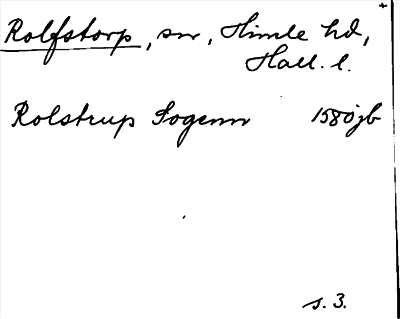 Rolfstorp, sn, Himle hd,
Hall. l.
Rolstrup Sogenn 1580 jb
s. 3.